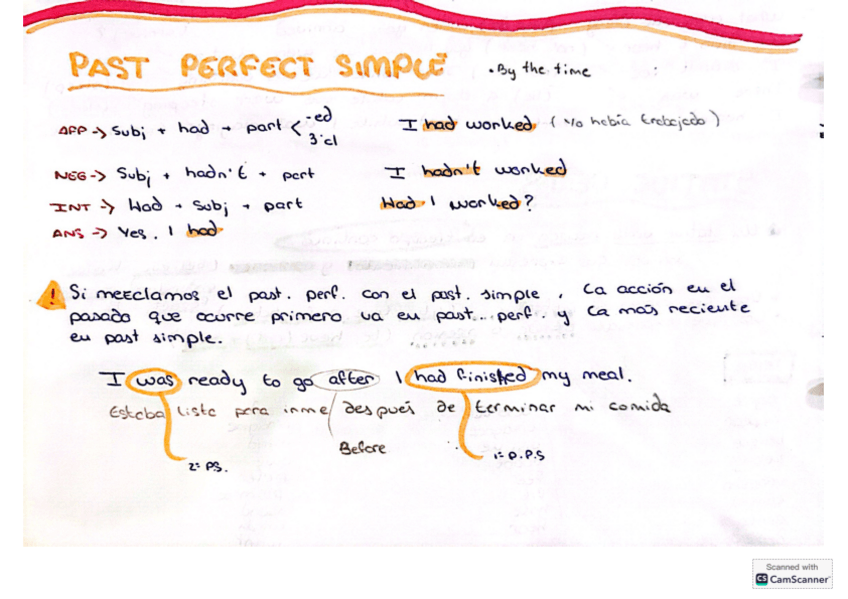 PAST PERFECT SIMPLE
• By the time
AFF -> Subj + had + part < -ed
3ªcl
I had worked (Yo había trabajado)
NEG -> Subj + hadn't + part
I hadn't worked
INT -> Had + Subj + part
Had I worked?
ANS -> Yes, I had
! Si mezclamos el past. perf. con el past. simple, la acción en el
pasado que ocurre primero va en past. perf. y la más reciente
en past simple.
I was ready to go after I had finished my meal.
Estaba listo para irme después de terminar mi comida
Before
2= PS.
1= P.P.S
Scanned with
CS CamScanner